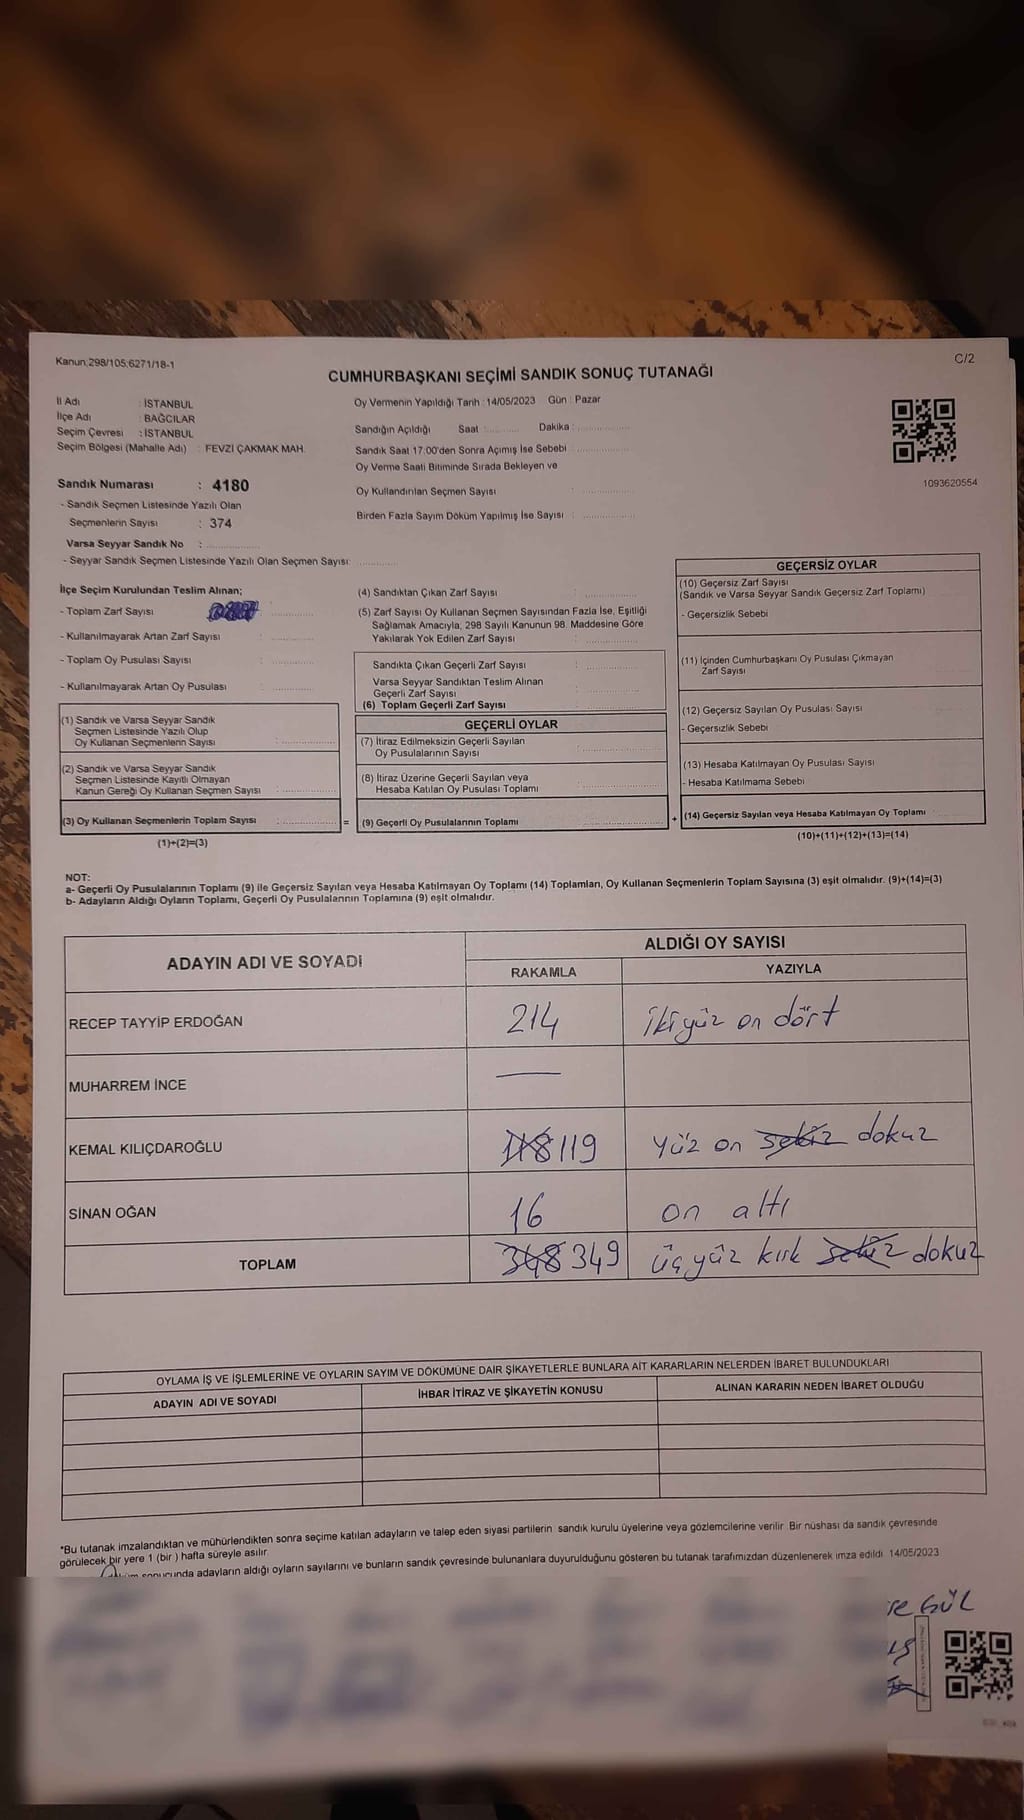 Kanun:298/105;6271/18-1
C/2
CUMHURBAŞKANI SEÇİMİ SANDIK SONUÇ TUTANAĞI
İl Adı : İSTANBUL
İlçe Adı : BAĞCILAR
Seçim Çevresi : İSTANBUL
Seçim Bölgesi (Mahalle Adı) : FEVZİ ÇAKMAK MAH.
Sandık Numarası : 4180
- Sandık Seçmen Listesinde Yazılı Olan
Seçmenlerin Sayısı : 374
Varsa Seyyar Sandık No :
- Seyyar Sandık Seçmen Listesinde Yazılı Olan Seçmen Sayısı:
Oy Vermenin Yapıldığı Tarih : 14/05/2023 Gün : Pazar
Sandığın Açıldığı Saat : Dakika :
Sandık Saat 17:00'den Sonra Açımış İse Sebebi
Oy Verme Saati Bitiminde Sırada Bekleyen ve
Oy Kullandırılan Seçmen Sayısı :
Birden Fazla Sayım Döküm Yapılmış İse Sayısı :
1093620554
İlçe Seçim Kurulundan Teslim Alınan;
- Toplam Zarf Sayısı
- Kullanılmayarak Artan Zarf Sayısı :
- Toplam Oy Pusulası Sayısı :
- Kullanılmayarak Artan Oy Pusulası :
(1) Sandık ve Varsa Seyyar Sandık
Seçmen Listesinde Yazılı Olup
Oy Kullanan Seçmenlerin Sayısı :
(2) Sandık ve Varsa Seyyar Sandık
Seçmen Listesinde Kayıtlı Olmayan
Kanun Gereği Oy Kullanan Seçmen Sayısı :
(3) Oy Kullanan Seçmenlerin Toplam Sayısı :
(1)+(2)=(3)
=
(4) Sandıktan Çıkan Zarf Sayısı :
(5) Zarf Sayısı Oy Kullanan Seçmen Sayısından Fazla İse, Eşitliği
Sağlamak Amacıyla; 298 Sayılı Kanunun 98. Maddesine Göre
Yakılarak Yok Edilen Zarf Sayısı :
Sandıkta Çıkan Geçerli Zarf Sayısı :
Varsa Seyyar Sandıktan Teslim Alınan
Geçerli Zarf Sayısı :
(6) Toplam Geçerli Zarf Sayısı :
GEÇERLİ OYLAR
(7) İtiraz Edilmeksizin Geçerli Sayılan
Oy Pusulalarının Sayısı :
(8) İtiraz Üzerine Geçerli Sayılan veya
Hesaba Katılan Oy Pusulası Toplamı :
(9) Geçerli Oy Pusulalarının Toplamı :
+
GEÇERSİZ OYLAR
(10) Geçersiz Zarf Sayısı
(Sandık ve Varsa Seyyar Sandık Geçersiz Zarf Toplamı)
- Geçersizlik Sebebi
(11) İçinden Cumhurbaşkanı Oy Pusulası Çıkmayan
Zarf Sayısı
(12) Geçersiz Sayılan Oy Pusulası Sayısı
- Geçersizlik Sebebi
(13) Hesaba Katılmayan Oy Pusulası Sayısı
- Hesaba Katılmama Sebebi
(14) Geçersiz Sayılan veya Hesaba Katılmayan Oy Toplamı
(10)+(11)+(12)+(13)=(14)
NOT:
a- Geçerli Oy Pusulalarının Toplamı (9) ile Geçersiz Sayılan veya Hesaba Katılmayan Oy Toplamı (14) Toplamları, Oy Kullanan Seçmenlerin Toplam Sayısına (3) eşit olmalıdır. (9)+(14)=(3)
b- Adayların Aldığı Oyların Toplamı, Geçerli Oy Pusulalarının Toplamına (9) eşit olmalıdır.
ADAYIN ADI VE SOYADI
ALDIĞI OY SAYISI
RAKAMLA YAZIYLA
RECEP TAYYİP ERDOĞAN 214 ikiyüz on dört
MUHARREM İNCE —
KEMAL KILIÇDAROĞLU 118 119 yüz on sekiz dokuz
SİNAN OĞAN 16 on altı
TOPLAM 348 349 üçyüz kırk sekiz dokuz
OYLAMA İŞ VE İŞLEMLERİNE VE OYLARIN SAYIM VE DÖKÜMÜNE DAİR ŞİKAYETLERLE BUNLARA AİT KARARLARIN NELERDEN İBARET BULUNDUKLARI
ADAYIN ADI VE SOYADI İHBAR İTİRAZ VE ŞİKAYETİN KONUSU ALINAN KARARIN NEDEN İBARET OLDUĞU
*Bu tutanak imzalandıktan ve mühürlendikten sonra seçime katılan adayların ve talep eden siyasi partilerin sandık kurulu üyelerine veya gözlemcilerine verilir. Bir nüshası da sandık çevresinde
görülecek bir yere 1 (bir ) hafta süreyle asılır.
adayların aldığı oyların sayılarını ve bunların sandık çevresinde bulunanlara duyurulduğunu gösteren bu tutanak tarafımızdan düzenlenerek imza edildi. 14/05/2023
GÜL